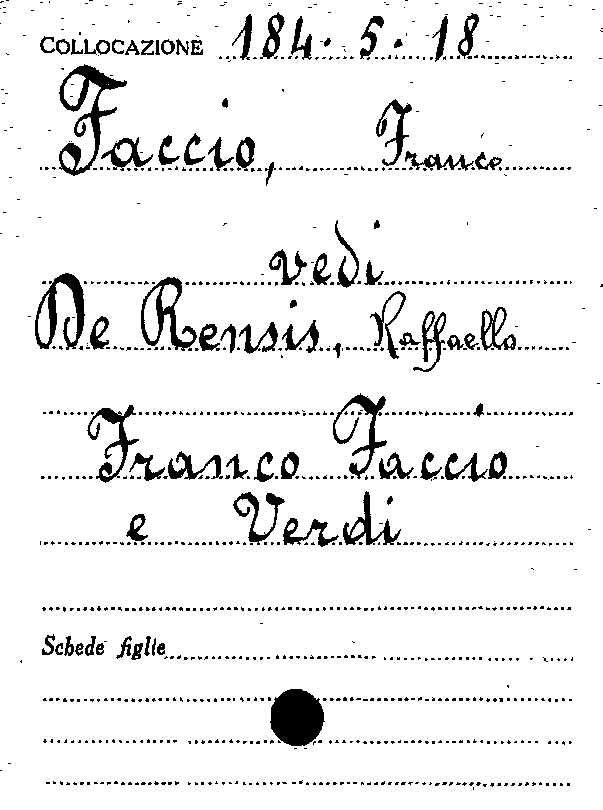 COLLOCAZIONE 184. 5. 18
Faccio, Franco
vedi
De Rensis, Raffaello
Franco Faccio
e Verdi
Schede figlie